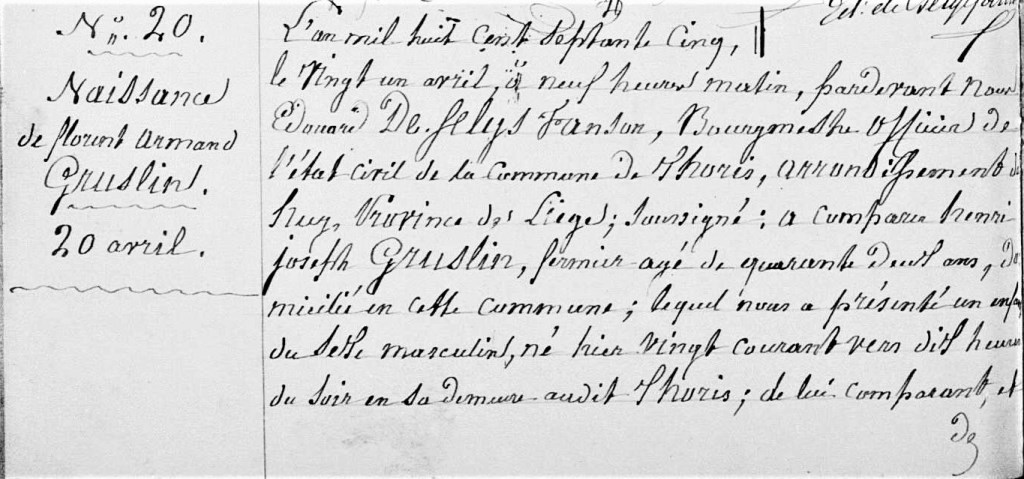 N°. 20.
Naissance
de florent armand
Gruslin.
20 avril.
L'an mil huit cent Septante Cinq,
le vingt un avril, à neuf heures matin, pardevant Nous
Edouard De Selys Fanson, Bourgmestre officier de
l'état civil de la commune de Thoris, arrondissement de
huy, Province de Liége; soussigné; a comparu henri
joseph Gruslin, fermier agé de quarante deus ans, do
micilié en cette commune; lequel nous a présenté un enfan
du sexe masculin, né hier vingt courant vers dix heures
du soir en sa demeure audit Thoris; de lui comparant, et
de